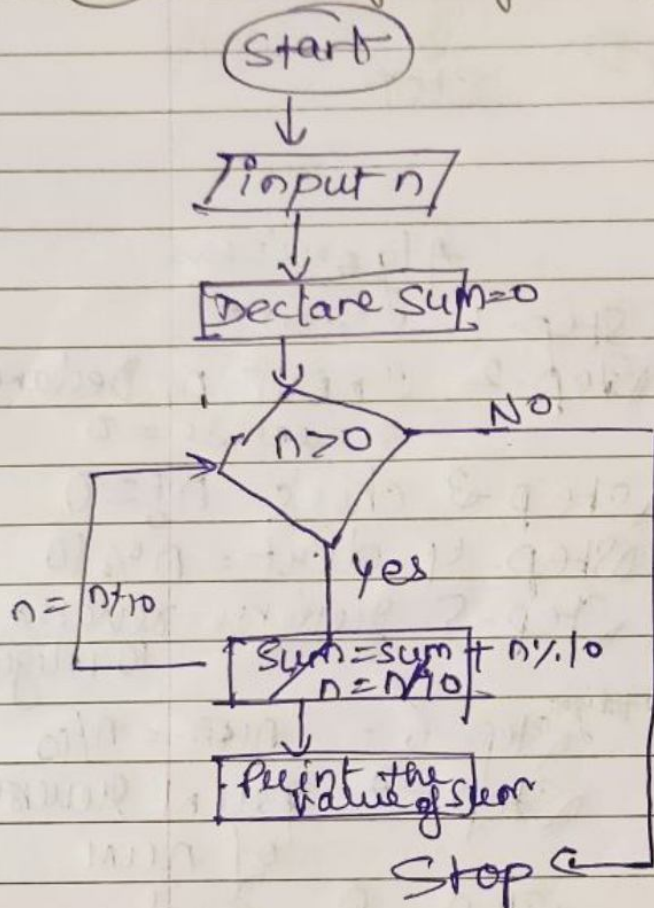 Start
input n
Declare Sum=0
n>0
NO
yes
n = n/10
Sum=sum + n%10
n=n/10
Print the
value of sum
Stop